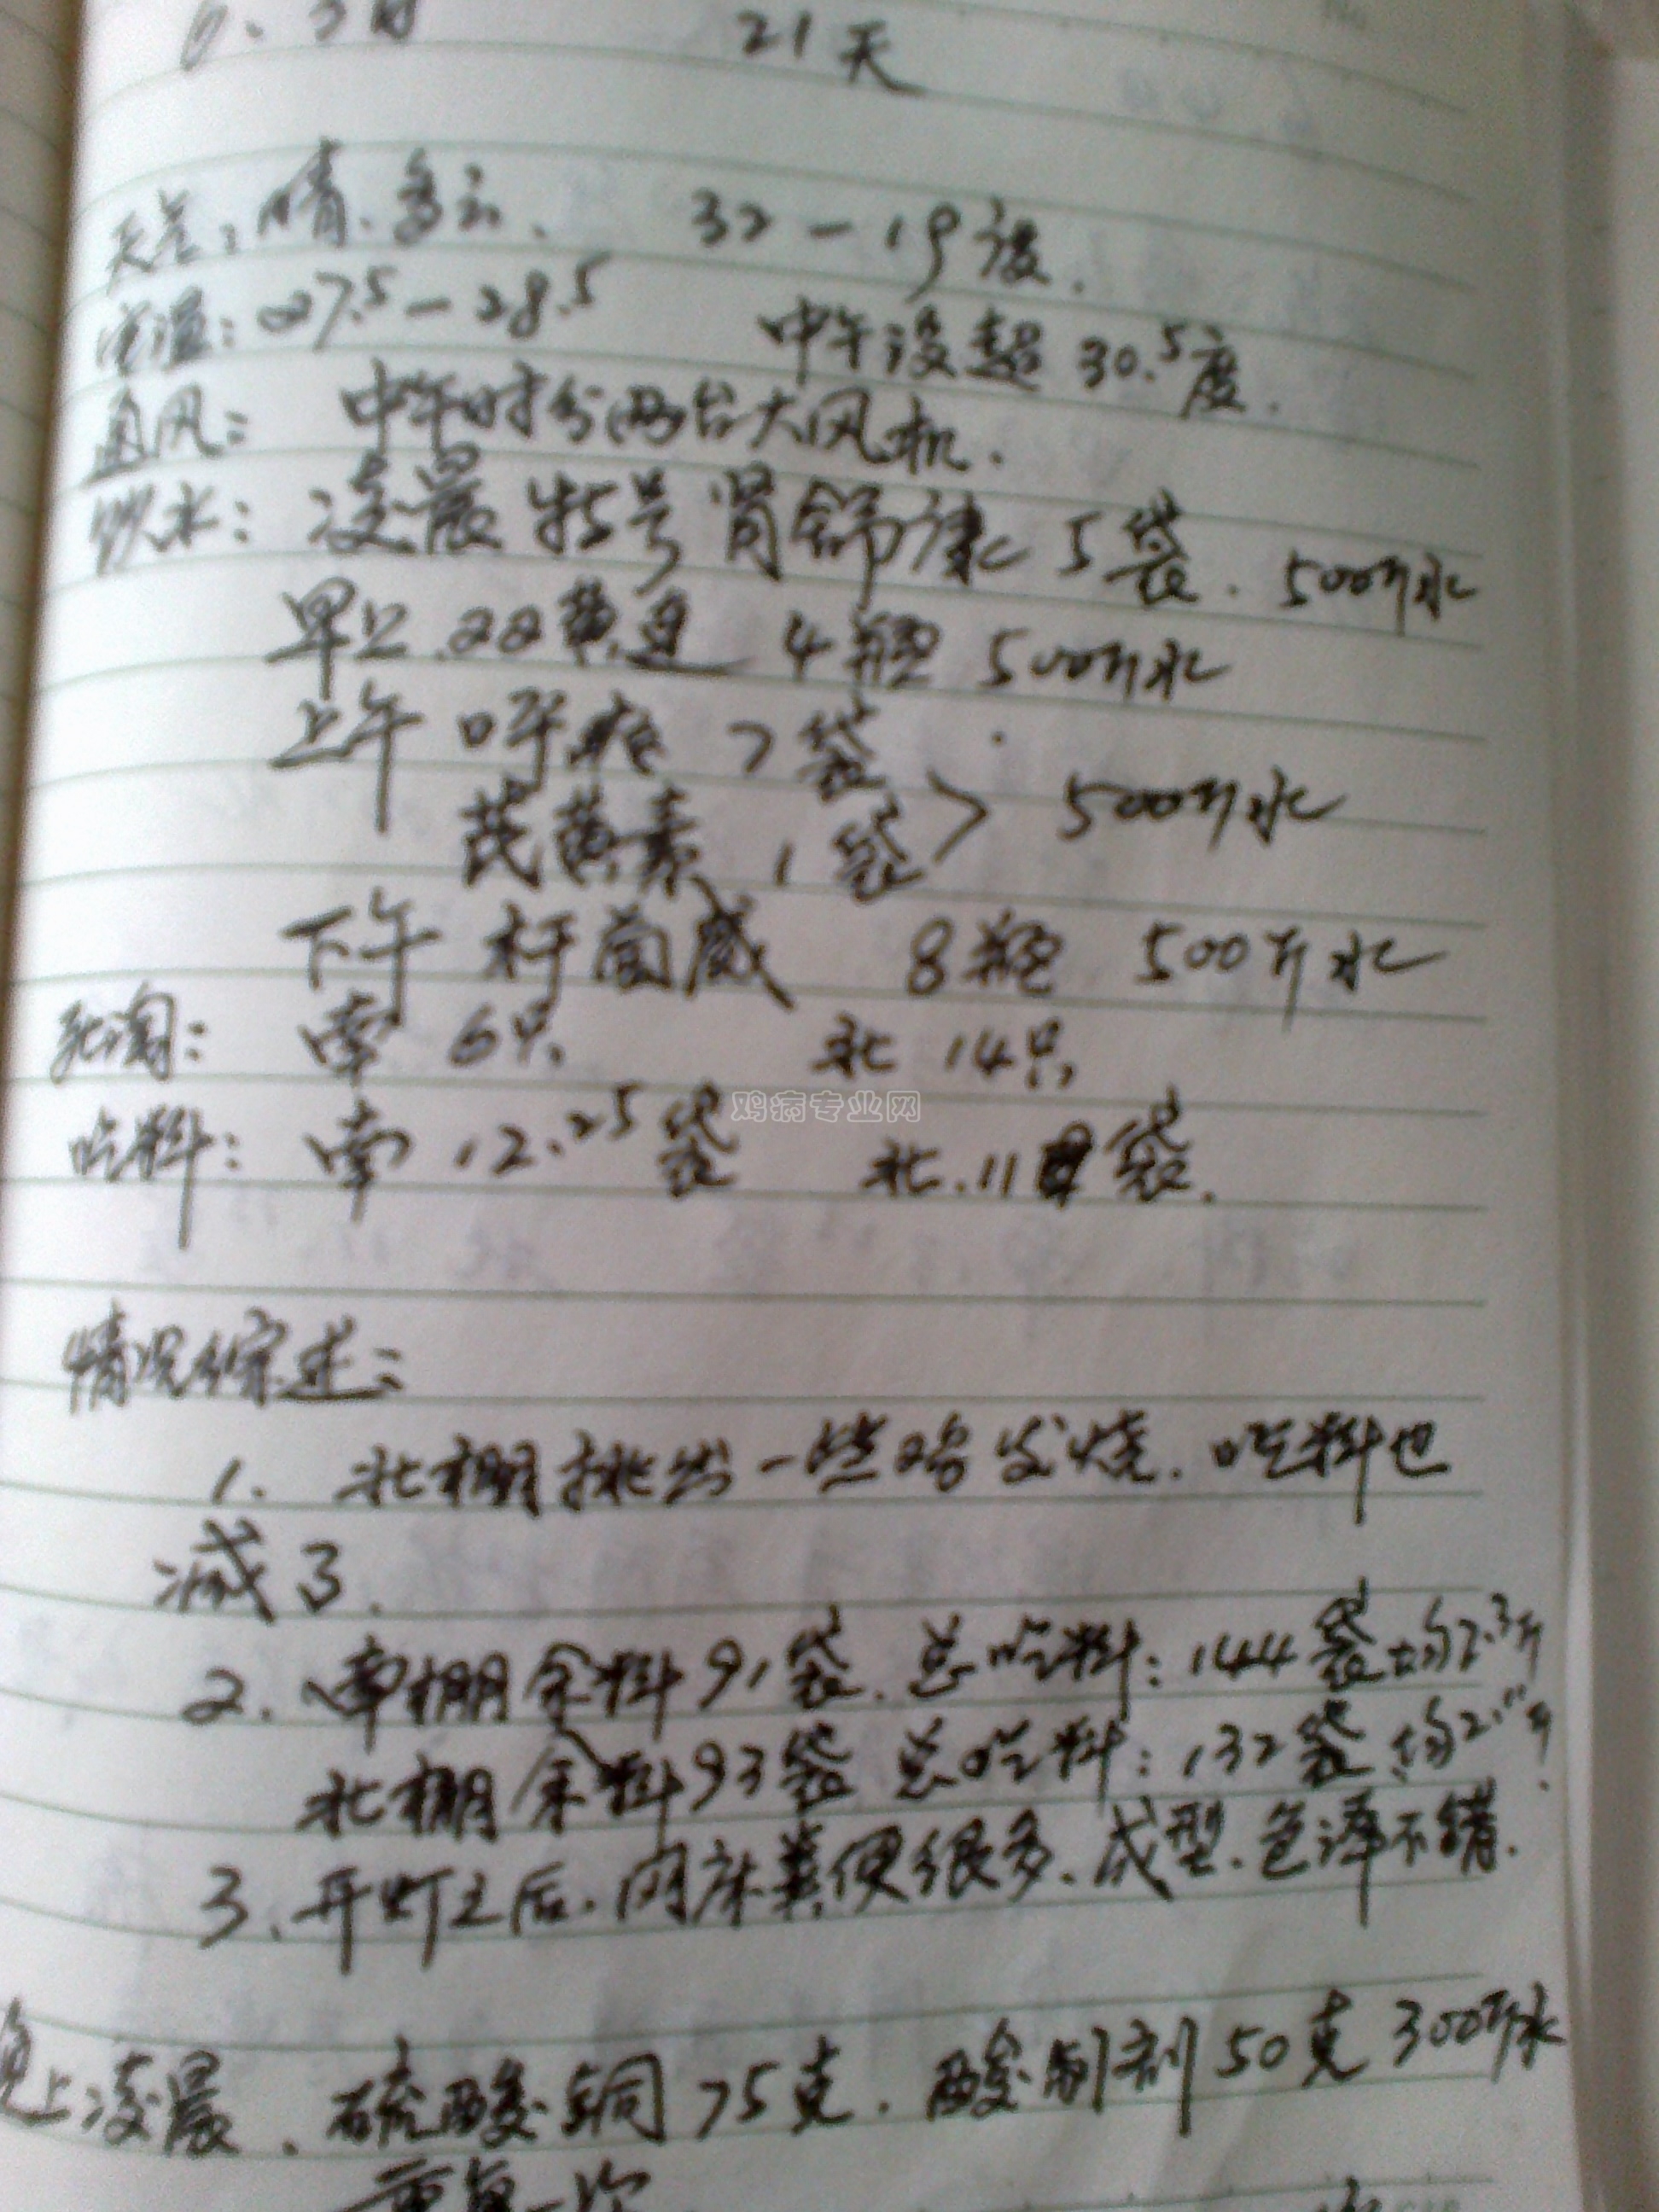 6、3日 21天
天差：晴.多云、 32－19度.
室温：27.5－28.5 中午没超30.5度.
通风： 中午时分两台大风机.
饮水： 凌晨 肾舒康 5袋. 500斤水
早上.双黄连 4瓶 500斤水
上午 呼 7袋
芪黄素 1袋 > 500斤水
下午 杆菌威 8瓶 500斤水
死淘： 南 6只. 北 14只
吃料： 南 12.25袋 北.11袋.
鸡病专业网
情况综述：
1. 北棚挑出一些鸡发烧.吃料也
减了.
2. 南棚余料91袋.总吃料：144袋均2.3斤
北棚余料93袋 总吃料：132袋均2.11斤.
3、开灯之后.网床粪便很多、成型.色泽不错.
晚上凌晨、硫酸铜75克.酸制剂50克300斤水
重复一次